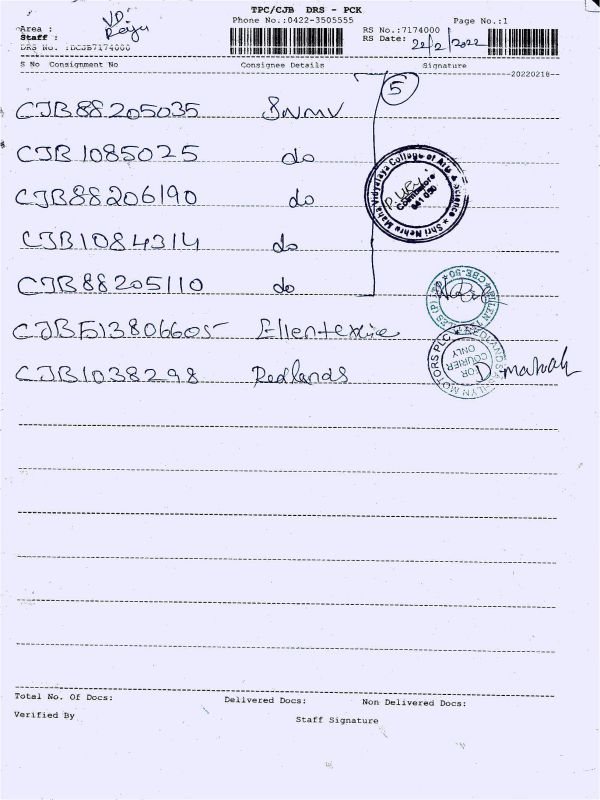 TPC/CJB DRS - PCK
Phone No.:0422-3505555
Page No.:1
Area :
Staff :
Raju
RS No.:7174000
RS Date: 22/2/2022
DRS No. :DCJB7174000
S No Consignment No Consignee Details Signature
20220218
5
CJB88205035 SNMV
CJB1085025 do
CJB88206190 do
CJB1084314 do
CJB88205110 do
Shri Nehru Maha Vidyalaya College of Arts & Science
Coimbatore
641 050
CJB513806605 Ellentexile
CJB1038298 Redlands
FOR
COURIER
ONLY
D. mahiah
Total No. Of Docs: Delivered Docs: Non Delivered Docs:
Verified By Staff Signature